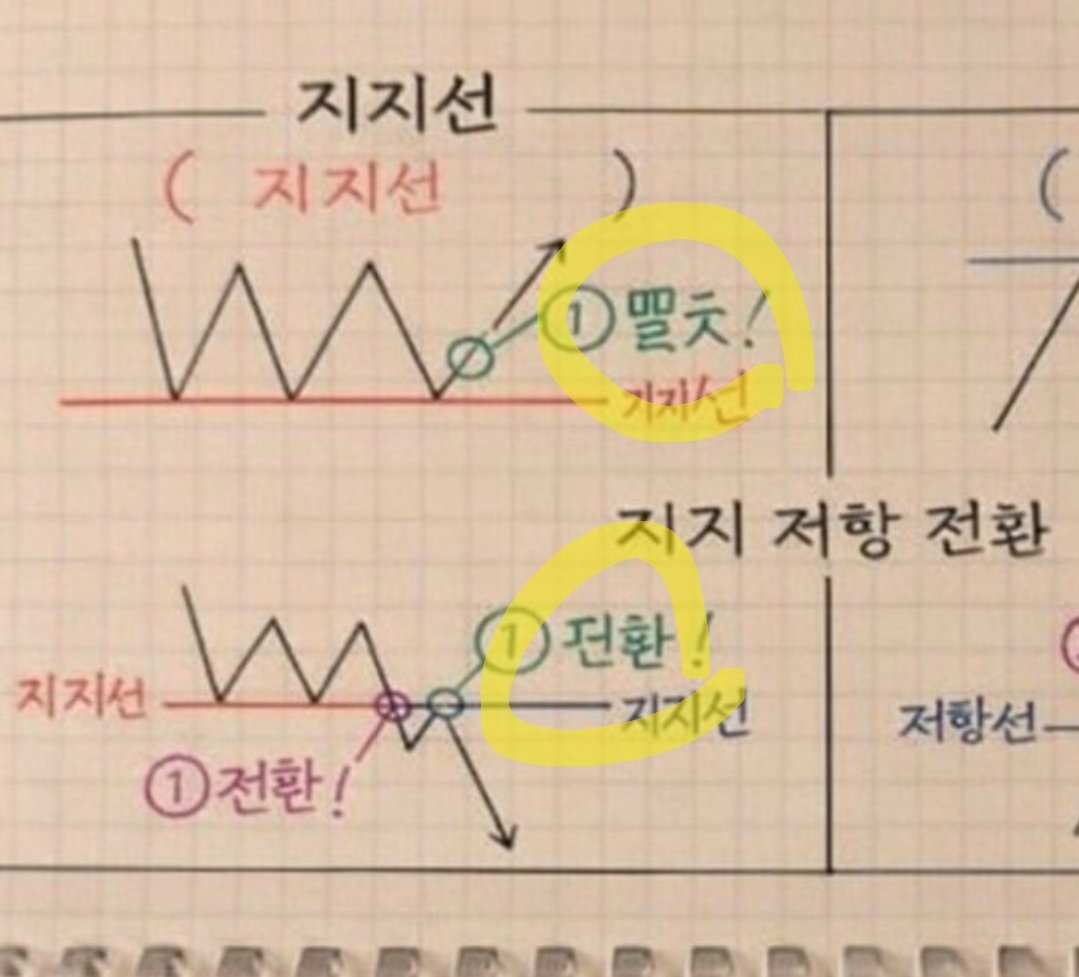 지지선
( 지지선 )
(
①
지지 저항 전환
① 전환!
지지선
지지선
저항선
① 전환!